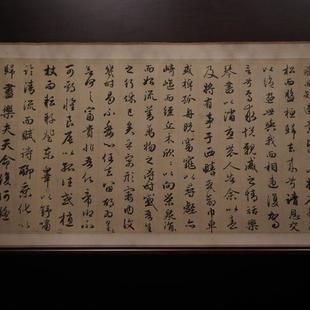 松而盤桓歸去來兮請息交
以絕遊世與我而相違復駕
言兮焉求悅親戚之情話樂
琴書以消憂農人告余以春
及將有事于西疇或命巾車
或棹孤舟既窈窕以尋壑亦
崎嶇而經丘木欣欣以向榮泉涓涓
而始流善萬物之得時感吾生
之行休已矣乎寓形宇內復
幾時曷不委心任去留胡為乎
遑遑欲何之富貴非吾願帝鄉不
可期懷良辰以孤往或植
杖而耘耔登東皋以舒嘯
臨清流而賦詩聊乘化以
歸盡樂夫天命復奚疑